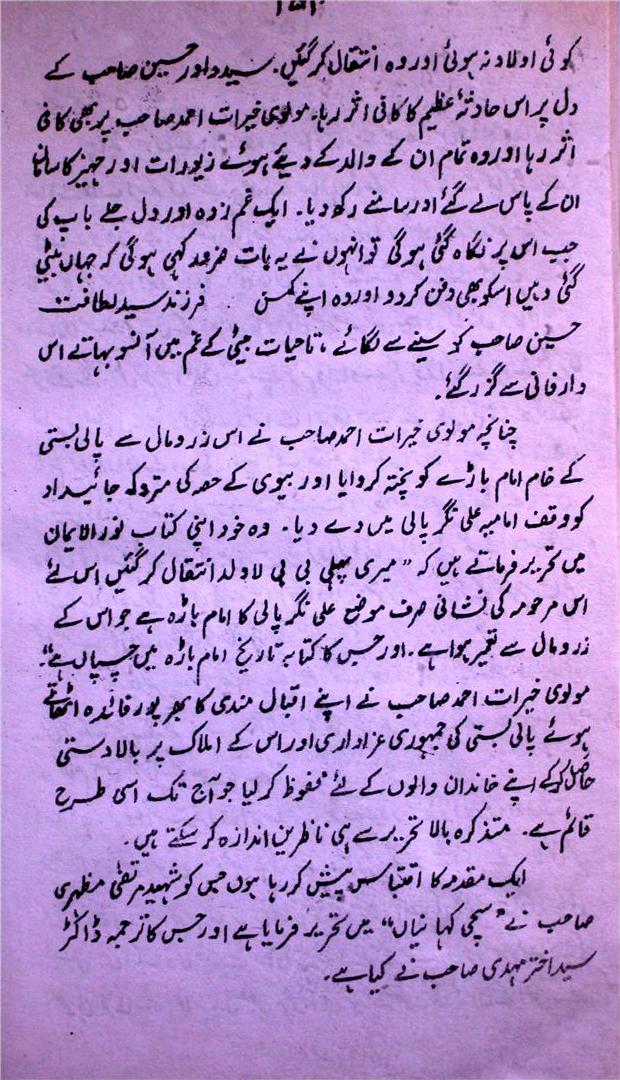 کوئی اولاد نہ ہوئی اور وہ انتقال کرگئیں۔ سید داور حسین صاحب کے
دل پر اس حادثۂ عظیم کا کافی اثر رہا۔ مولوی خیرات احمد صاحب پر بھی کافی
اثر رہا اور وہ تمام ان کے والد کے دیئے ہوئے زیورات اور جہیز کا سامان
ان کے پاس لے گئے اور سامنے رکھ دیا۔ ایک غم زدہ اور دل جلے باپ کی
جب اس پر نگاہ گئی ہوگی تو انہوں نے یہ بات ضرور کہی ہوگی کہ جہاں بیٹی
گئی وہیں اسکو بھی دفن کردو اور وہ اپنے کمسن فرزند سید لطافت
حسین صاحب کو سینے سے لگائے، تاحیات بیٹی کے غم میں آنسو بہاتے اس
دار فانی سے گزر گئے۔
چنانچہ مولوی خیرات احمد صاحب نے اس زر و مال سے پالی بستی
کے خام امام باڑے کو پختہ کروایا اور بیوی کے حصہ کی متروکہ جائیداد
کو وقف امامیہ علی نگر پالی میں دے دیا۔ وہ خود اپنی کتاب نور الایمان
میں تحریر فرماتے ہیں کہ "میری پہلی بی بی لاولد انتقال کر گئیں اس لئے
اس مرحومہ کی نشانی صرف موضع علی نگر پالی کا امام باڑہ ہے جو اس کے
زر و مال سے تعمیر ہوا ہے۔ اور جس کا کتابہ تاریخ امام باڑہ میں چسپاں ہے"۔
مولوی خیرات احمد صاحب نے اپنے اقبال مندی کا بھرپور فائدہ اٹھاتے
ہوئے پالی بستی کی جمہوری عزاداری اور اس کے املاک پر بالادستی
حاصل کرکے اپنے خاندان والوں کے لئے محفوظ کر لیا جو آج تک اسی طرح
قائم ہے۔ متذکرہ بالا تحریر سے ہی ناظرین اندازہ کر سکتے ہیں۔
ایک مقدمہ کا اقتباس پیش کر رہا ہوں جس کو شہید مرتضیٰ مطہری
صاحب نے "سچی کہانیاں" میں تحریر فرمایا ہے اور جس کا ترجمہ ڈاکٹر
سید اختر مہدی صاحب نے کیا ہے۔